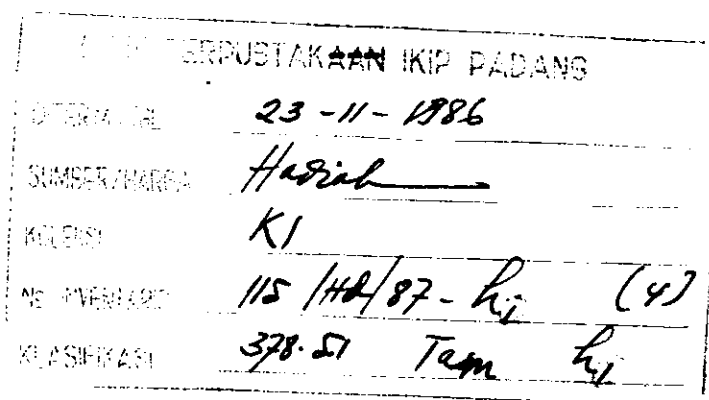 PERPUSTAKAAN IKIP PADANG
DITERIMA TGL 23-11-1986
SUMBER/HARGA Hadiah
KOLEKSI KI
No. INVENTARIS 115/Hd/87-hi (4)
KLASIFIKASI 378.51 Tam hi